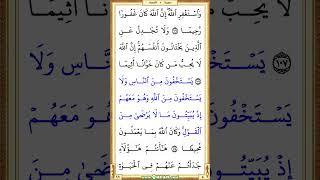 وَٱسْتَغْفِرِ ٱللَّهَ إِنَّ ٱللَّهَ كَانَ غَفُورًا
رَّحِيمًا ١٠٦ وَلَا تُجَٰدِلْ عَنِ
ٱلَّذِينَ يَخْتَانُونَ أَنفُسَهُمْ إِنَّ ٱللَّهَ
لَا يُحِبُّ مَن كَانَ خَوَّانًا أَثِيمًا
١٠٧ يَسْتَخْفُونَ مِنَ ٱلنَّاسِ وَلَا
يَسْتَخْفُونَ مِنَ ٱللَّهِ وَهُوَ مَعَهُمْ
إِذْ يُبَيِّتُونَ مَا لَا يَرْضَىٰ مِنَ
ٱلْقَوْلِ وَكَانَ ٱللَّهُ بِمَا يَعْمَلُونَ
مُحِيطًا ١٠٨ هَٰٓأَنتُمْ هَٰٓؤُلَآءِ
جَٰدَلْتُمْ عَنْهُمْ فِى ٱلْحَيَوٰةِ